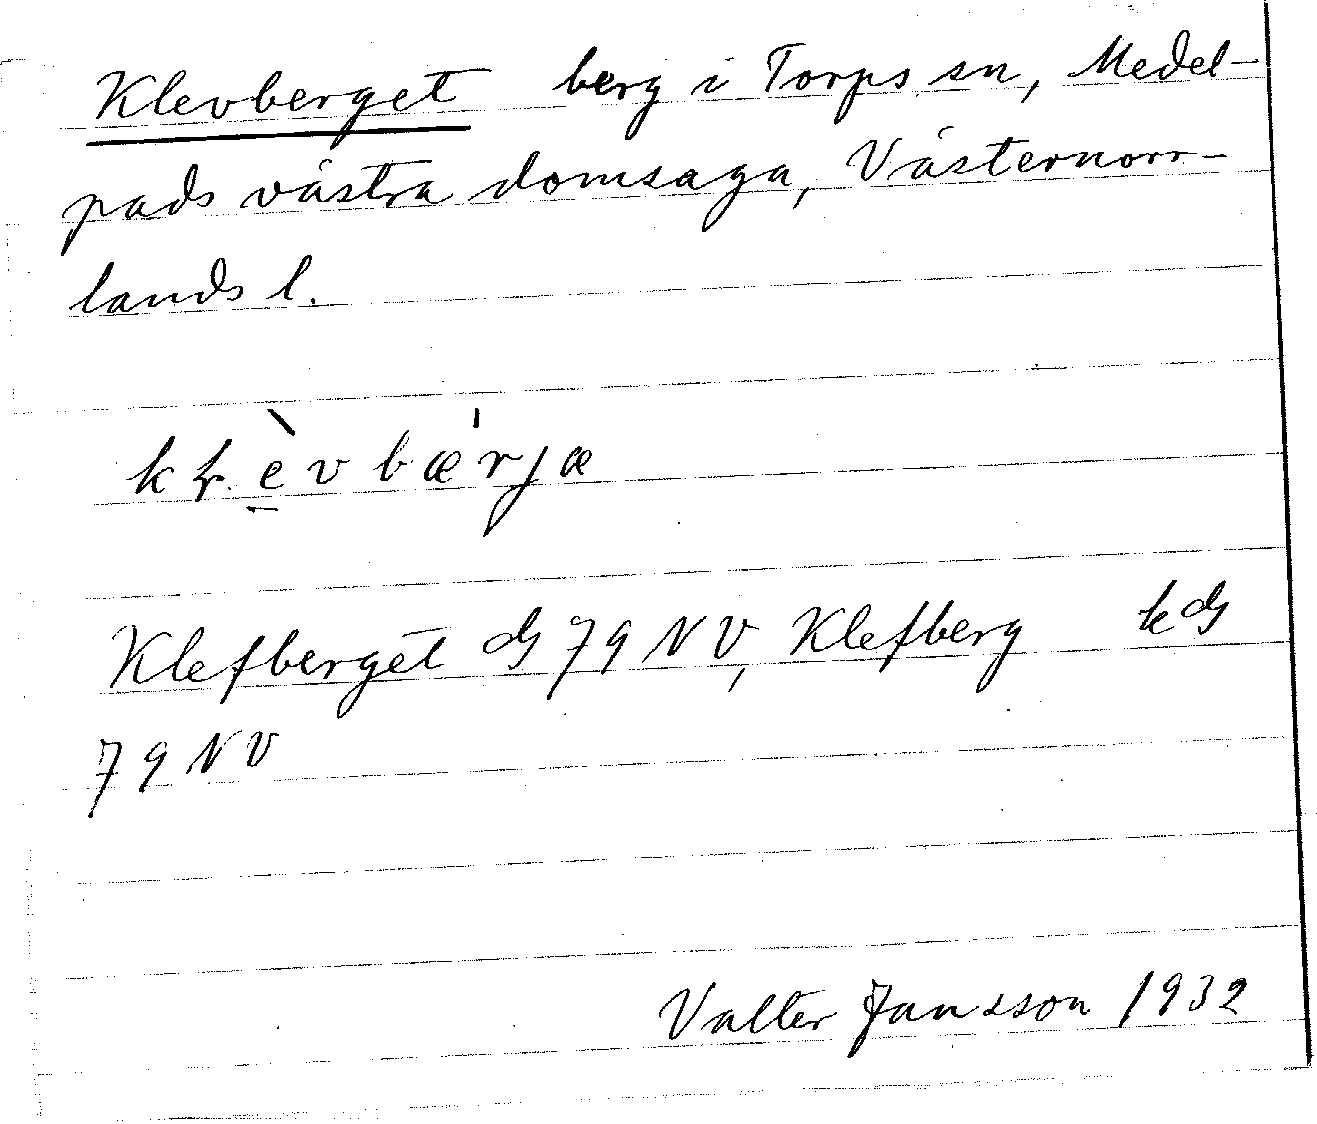 Klevberget berg i Torps sn, Medel-
pads västra domsaga, Västernorr-
lands l.
kḷèvbærjæ
Klefberget dG 79 NV, Klefberg kdG
79 NV
Valter Jansson 1932